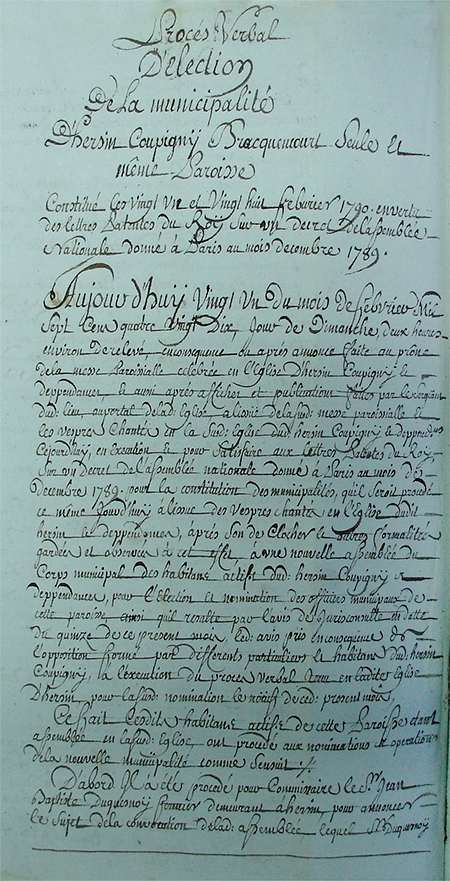 Procés Verbal
D'Election
De La municipalité
D'hersin Coupigny Bracquencourt Seule et
même Paroisse
Constitué Les vingt un et Vingt huit febvrier 1790. en vertu
des lettres Patentes du Roy sur un decret de l'assemblée
Nationale donné à Paris au mois decembre 1789.
Aujourd'huy Vingt un du mois de febvrier Mil
Sept Cens quatre Vingt Dix, Jour de Dimanche, deux heures
environ de relevé, en consequence ou après annonce faite au prône
de la messe Paroissialle célébrée en l'Eglise D'hersin Coupigny et
deppendances, et aussi après affiches et publication faites par le sergent
dud: lieu, au portal de lad: Eglise a lissüe de la sud: messe paroissialle et
les vespres Chantés en la Sud: Eglise dud: hersin Coupigny et deppend:ces
Cejourdhuy, en execution et pour Satisfaire aux Lettres Patentes du Roy
Sur un decret de l'assemblée nationale donné à Paris au mois de
decembre 1789. pour la constitution des municipalités, qu'il seroit procédé
ce même Jourd'huy a lissue des Vespres chantés en l'Eglise dudit
hersin et deppendances, après son de Clocher et autres formalités
gardées et observées à cet effet a une nouvelle assemblée du
Corps municipal des habitans actifs dud: hersin Coupigny et
deppendances, pour l'Election et nomination des officiers municipaux de
cette paroisse, ainsi qu'il resulte par l'avis de Jurisconsulte en datte
du quinze de ce present mois, led: avis pris en consequence de
l'opposition formé par differents particuliers et habitans dud: hersin
Coupigny, a l'execution du procès verbal tenu en ladite Eglise
D'hersin, pour la sud: nomination le neuf de ced: present mois,
Ce fait lesdits habitans actifs de cette Paroisse étant
assemblée en lasud: Eglise, ont procédé aux nominations et operations
de la nouvelle municipalité comme Sensuit :/.
D'abord Il a été procédé pour Commissaire le Sr. Jean
Baptiste Duquesnoy fermier demeurant à hersin, pour annoncer
le Sujet de la convocation de lad: assemblée, lequel Sr. Duquesnoy